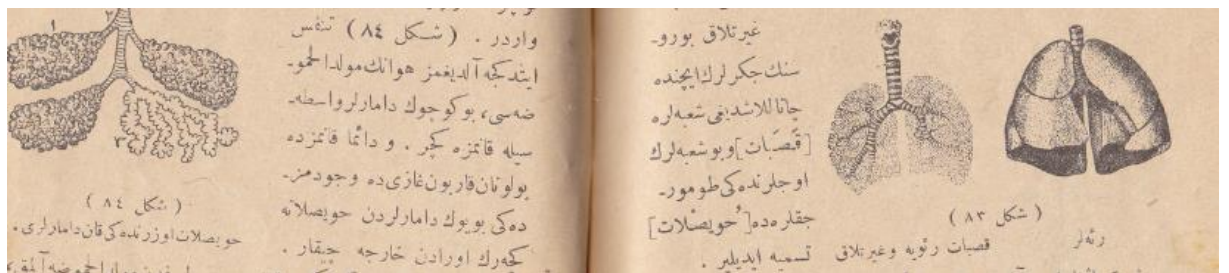 غیرتلاق بورو-
سنك جكرلرك ایچنده
چاتاللاشدیغی شعبه‌لره
[قصبات] وبو شعبه‌لرك
اوجلرنده‌كی طومور-
جقلره ده [حویصلات]
تسمیه ایدیلیر .
( شكل ٨٣ )
رئه‌لر
قصبات رئویه وغیرتلاق
واردر . ( شكل ٨٤ ) تنفس
ایتدكجه آلدیغمز هوانك مولدالحمو-
ضه‌سی، بو كوچوك دامارلر واسطه-
سیله قانمزه كچر . و دائما قانمزده
بولونان قاربون غازی ده وجودمز-
ده‌كی بویوك دامارلردن حویصلاته
كچه‌رك اورادن خارجه چیقار .
١
٢
٣
( شكل ٨٤ )
حویصلات اوزرنده‌كی قان دامارلری .